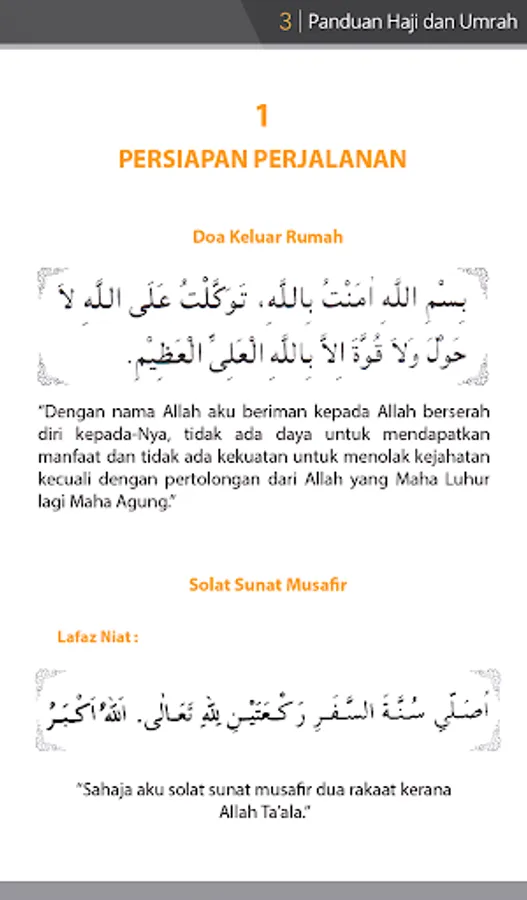 3 | Panduan Haji dan Umrah
1
PERSIAPAN PERJALANAN
Doa Keluar Rumah
بِسْمِ اللَّهِ اٰمَنْتُ بِاللَّهِ، تَوَكَّلْتُ عَلَى اللَّهِ لاَ
حَوْلَ وَلاَ قُوَّةَ اِلاَّ بِاللَّهِ الْعَلِيِّ الْعَظِيْمِ.
“Dengan nama Allah aku beriman kepada Allah berserah
diri kepada-Nya, tidak ada daya untuk mendapatkan
manfaat dan tidak ada kekuatan untuk menolak kejahatan
kecuali dengan pertolongan dari Allah yang Maha Luhur
lagi Maha Agung.”
Solat Sunat Musafir
Lafaz Niat :
اُصَلِّي سُنَّةَ السَّفَرِ رَكْعَتَيْنِ لِلّٰهِ تَعَالٰى. اَللّٰهُ اَكْبَرُ
“Sahaja aku solat sunat musafir dua rakaat kerana
Allah Ta’ala.”